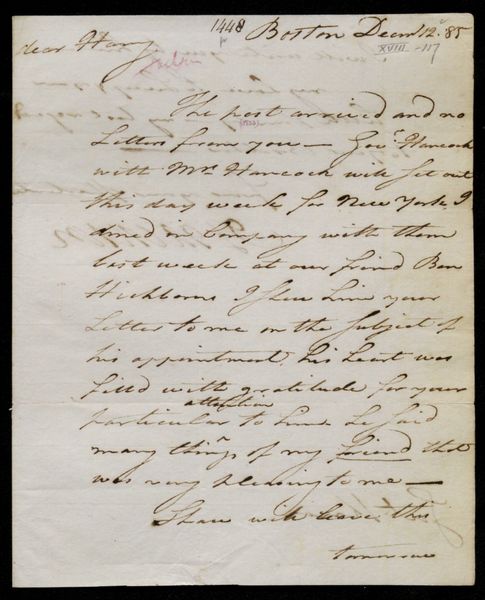 1448
Boston Decem 12. 85
XVIII-117
dear Harry
The post arrived and no
Letters from you — Gov.r Hancock
with Mrs Hancock will set out
this day week for New York I
dined in Company with them
last week at our friend Ben
Hichborns I shew him your
Letter to me on the subject of
his appointment, his heart was
filld with gratitude for your
attention
particular to him he said
many things of my friend that
was very pleasing to me —
Shaw will leave this
tomorrow